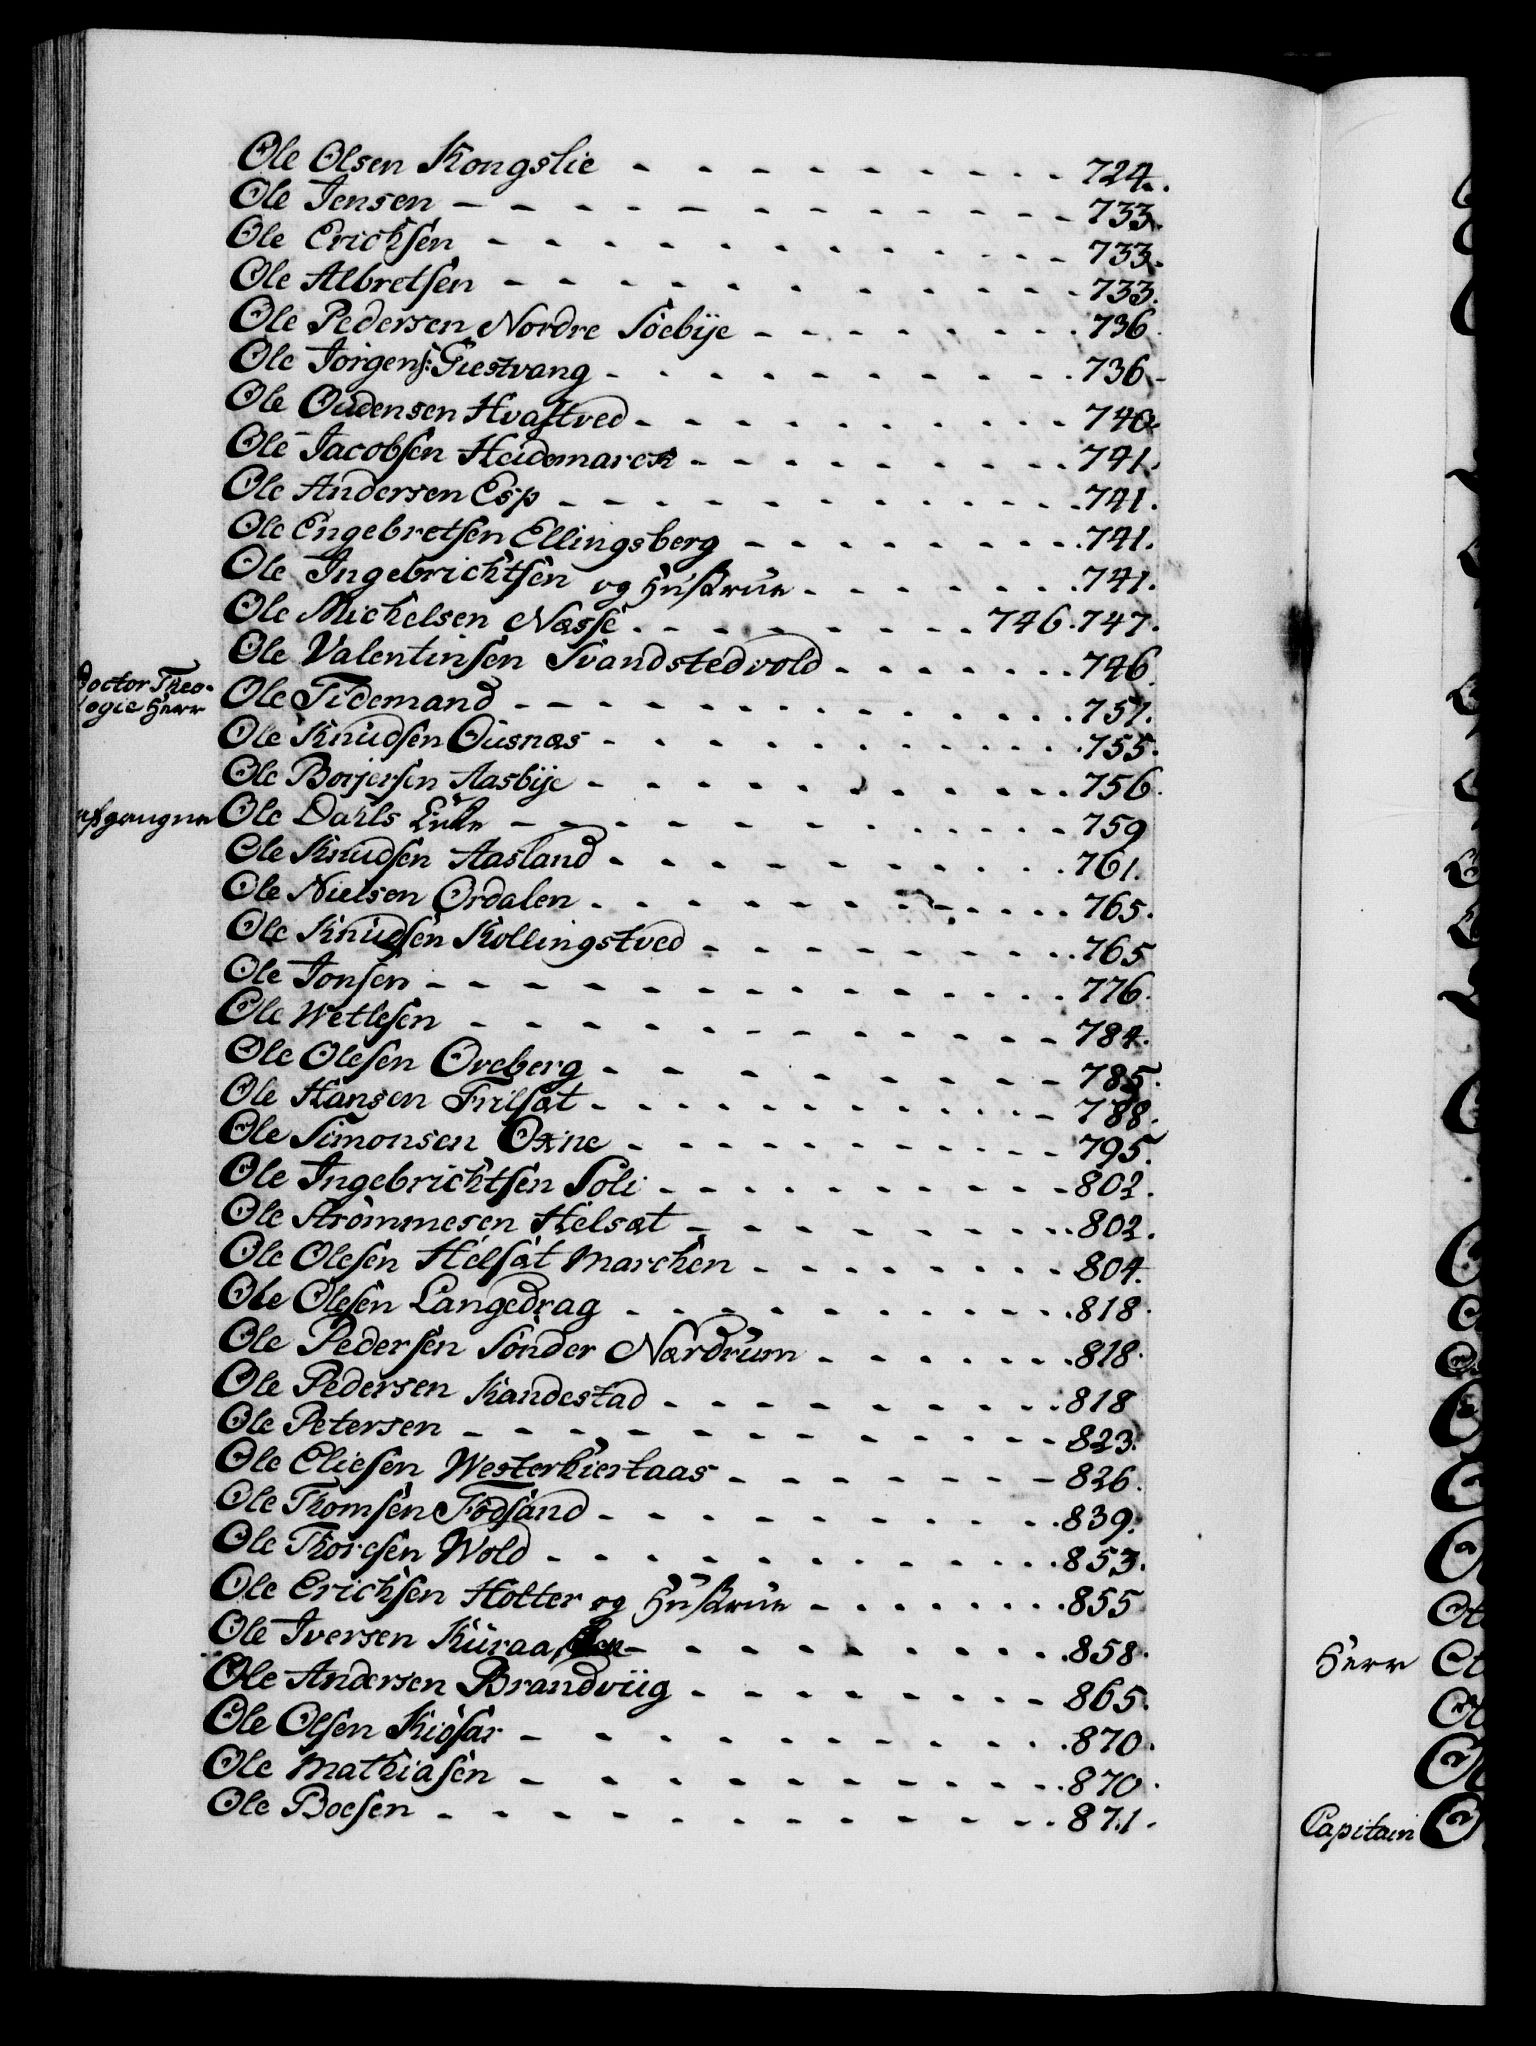 Ole Olsen Kongslie - - - - - - - - - 724.
Ole Jensen - - - - - - - - - - - - 733.
Ole Erichsen - - - - - - - - - - - 733.
Ole Albretsen - - - - - - - - - - - 733.
Ole Pedersen Nordre Söebÿe - - - - - - - - 736
Ole Jörgens: Giestvang - - - - - - - - - - 736
Ole Oudensen Hvastved - - - - - - - - - 740.
Ole Jacobsen Heidemarck - - - - - - - - - 741.
Ole Andersen Esp - - - - - - - - - - - 741.
Ole Engebretsen Ellingsberg - - - - - - - - 741.
Ole Ingebrichtsen og Hustrue - - - - - - 741.
Ole Michelsen Næsse - - - - - - - - 746.747.
Ole Valentinsen Svandstedvold - - - - - - - 746.
Doctor Theo-
logie Herr Ole Tidemand - - - - - - - - - - - 751.
Ole Knudsen Ousnæs - - - - - - - - - - 755.
Ole Borjersen Aasbÿe - - - - - - - - - - 756.
afgangne Ole Dahls Enke - - - - - - - - - - - 759
Ole Knudsen Aasland - - - - - - - - - - 761.
Ole Nielsen Ordalen - - - - - - - - - - 765.
Ole Knudsen Kollingstved - - - - - - - - 765
Ole Jonsen - - - - - - - - - - - - 776.
Ole Wetlesen - - - - - - - - - - - 784.
Ole Olesen Oreberg - - - - - - - - - 785.
Ole Hansen Frilsæt - - - - - - - - - - 788.
Ole Simonsen Oxne - - - - - - - - - - 795.
Ole Ingebrichtsen Soli - - - - - - - - - 802.
Ole Strömmesen Helsæt - - - - - - - - 802.
Ole Olesen Helsæt Marchen - - - - - - - - 804.
Ole Olesen Langedrag - - - - - - - - - 818.
Ole Pedersen Sönder Nærdrum - - - - - - 818.
Ole Pedersen Kandestad - - - - - - - - 818
Ole Petersen - - - - - - - - - - - 823.
Ole Eliesen Westerkiestaas - - - - - - - 826.
Ole Thomsen Födsand - - - - - - - - - 839.
Ole Thoresen Wold - - - - - - - - - - 853.
Ole Erichsen Holter og Hustrue - - - - - - - 855
Ole Iversen Kuraa - - - - - - - - 858.
Ole Andersen Brandviig - - - - - - - - 865.
Ole Olsen Kiösar - - - - - - - - - - 870.
Ole Mathiasen - - - - - - - - - - 870.
Ole Boesen - - - - - - - - - - - 871.
Herr
Capitain